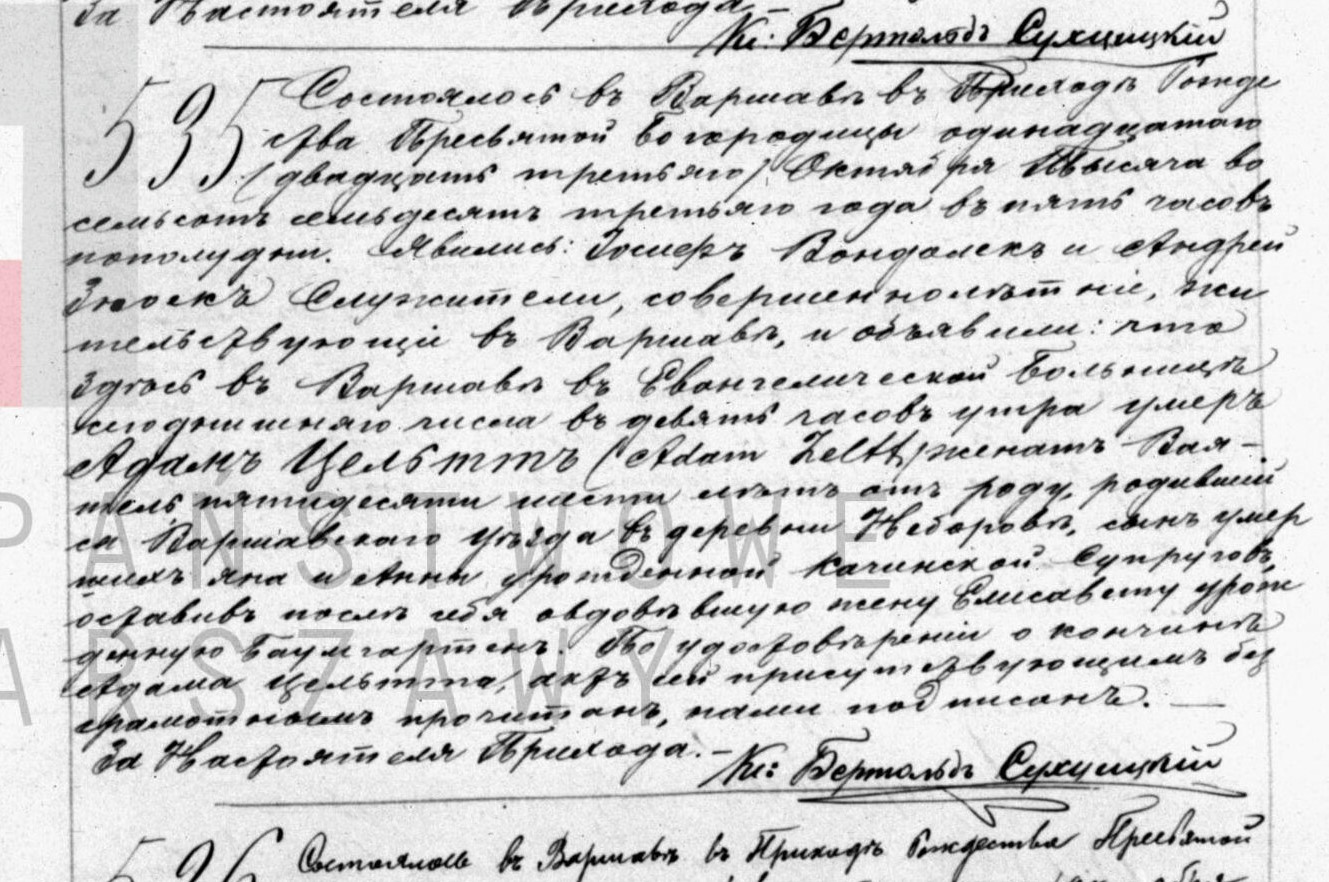 За Настоятеля Прихода —
Кс: Бертольдъ Сухцицкій
535 Состоялось въ Варшавѣ въ Приходѣ Рожде
ства Пресвятой Богородицы одинадцатаго
(двадцать третьяго) Октября Тысяча во
семьсотъ семьдесятъ третьяго года въ пять часовъ
пополудни. Явились: Іосифъ Вондолекъ и Андрей
служители, совершеннолѣтніе, жи
тельствующіе въ Варшавѣ, и объявили: что
здѣсь въ Варшавѣ въ Евангелической Больницѣ
сегоднишняго числа въ девять часовъ утра умеръ
Адамъ Цельттъ (Adam Zeltt) женатъ Вая-
тель пятидесяти шести лѣтъ отъ роду, родивший
ся Варшавскаго уѣзда въ деревни Неборовѣ, сынъ умер
шихъ Яна и Анны урожденной Качинской Супруговъ,
оставивъ послѣ себя овдовѣвшую жену Елисавету урож
денную Баумгартенъ. По удостовѣреніи о кончинѣ
Адама Цельтта, актъ сей присутствующимъ без
грамотнымъ прочитанъ, нами подписанъ. —
За Настоятеля Прихода. —
Кс: Бертольдъ Сухцицкій
536 Состоялось въ Варшавѣ въ Приходѣ Рождества Пресвятой
PAŃSTWOWE
ARSZAWY